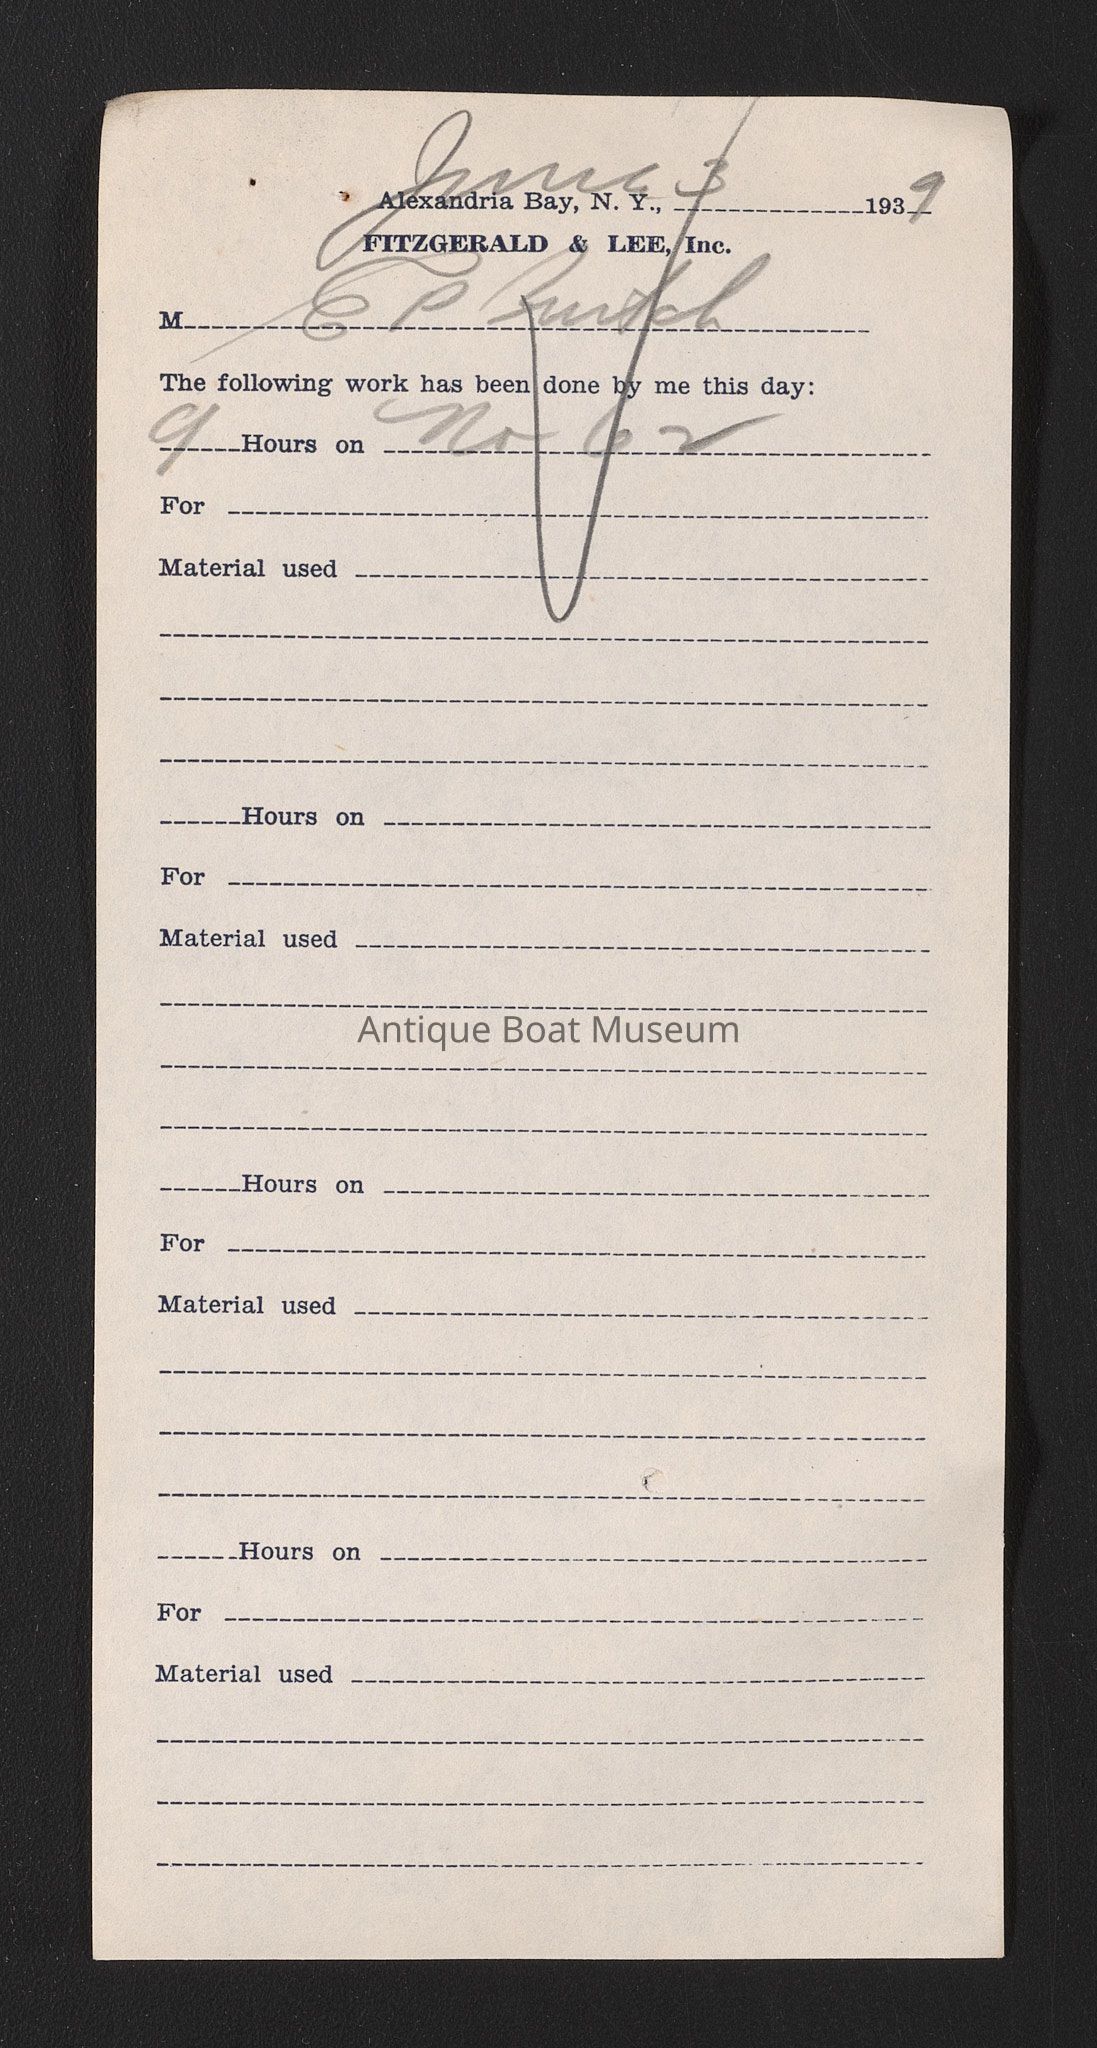 June 3
Alexandria Bay, N. Y., 1939
FITZGERALD & LEE, Inc.
M E P Burtch
The following work has been done by me this day:
9 Hours on No 62
For
Material used
Hours on
For
Material used
Antique Boat Museum
Hours on
For
Material used
Hours on
For
Material used